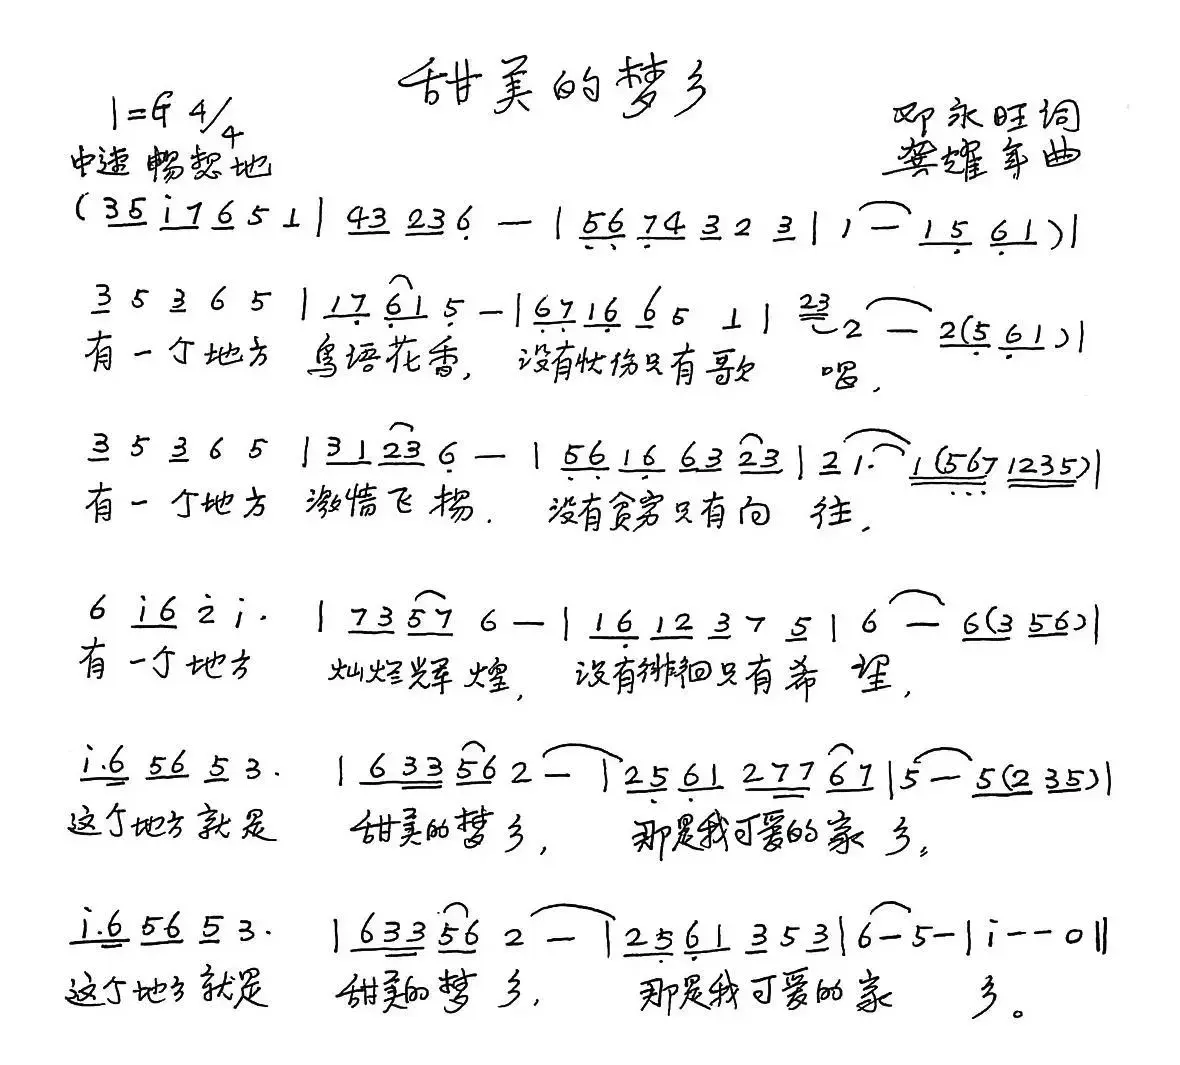 甜美的梦乡
1=G 4/4
邓永旺词
中速 畅想地
龚耀年曲
(35 i7 6 5 1 | 43 23 6 — | 56 74 3 2 3 | 1 — 15 61) |
3 5 3 6 5 | 17 61 5 — | 67 16 6 5 1 | 23 2 — 2(5 61) |
有一个地方 鸟语花香, 没有忧伤只有歌 唱,
3 5 3 6 5 | 31 23 6 — | 56 16 63 23 | 2 1. 1(567 1235) |
有一个地方 激情飞扬. 没有贫穷只有向 往,
6 i6 2 i. | 73 57 6 — | 16 12 3 7 5 | 6 — 6(3 56) |
有一个地方 灿烂辉煌, 没有徘徊只有希 望,
i.6 56 5 3. | 633 56 2 — | 25 61 277 67 | 5 — 5(2 35) |
这个地方就是 甜美的梦乡, 那是我可爱的家乡。
i.6 56 5 3. | 633 56 2 — | 25 61 3 5 3 | 6 — 5 — | i — — 0 ‖
这个地方就是 甜美的梦乡, 那是我可爱的家 乡。